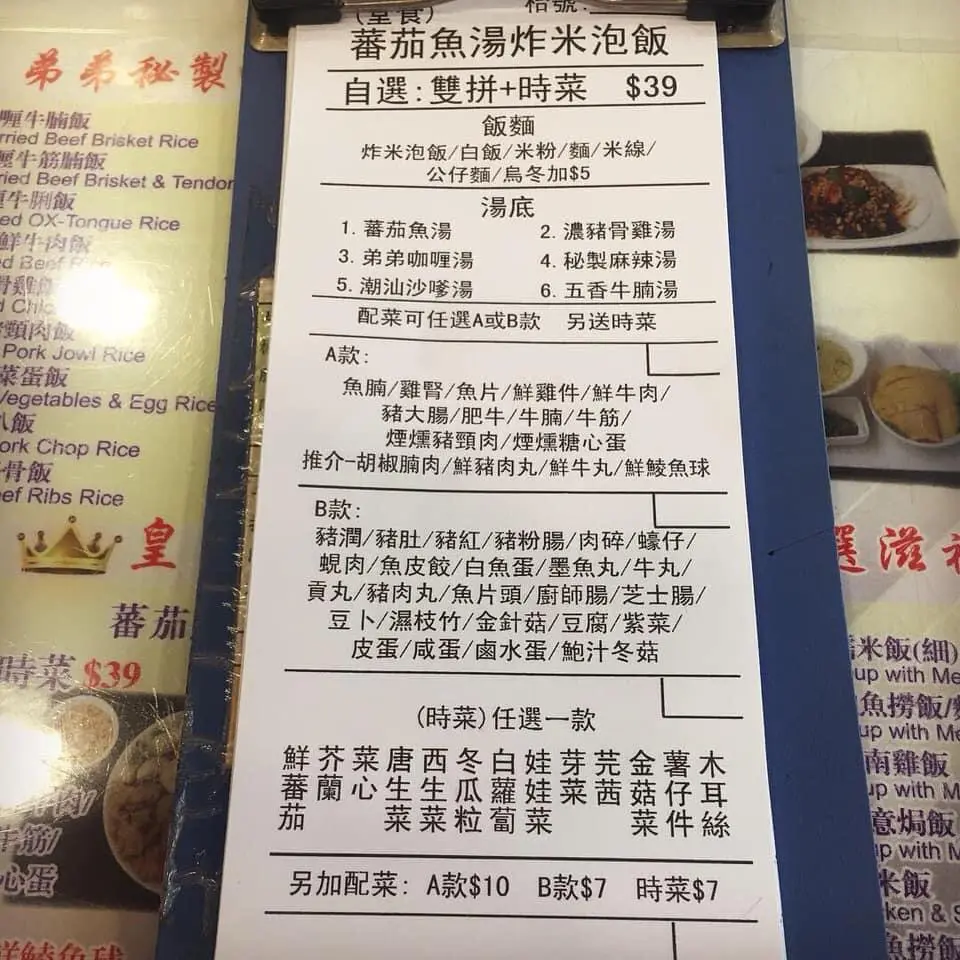 (堂食)
蕃茄魚湯炸米泡飯
自選:雙拼+時菜 $39
飯麵
炸米泡飯/白飯/米粉/麵/米線/
公仔麵/烏冬加$5
湯底
1. 蕃茄魚湯 2. 濃豬骨雞湯
3. 弟弟咖喱湯 4. 秘製麻辣湯
5. 潮汕沙嗲湯 6. 五香牛腩湯
配菜可任選A或B款 另送時菜
A款:
魚腩/雞腎/魚片/鮮雞件/鮮牛肉/
豬大腸/肥牛/牛腩/牛筋/
煙燻豬頸肉/煙燻糖心蛋
推介-胡椒腩肉/鮮豬肉丸/鮮牛丸/鮮鯪魚球
B款:
豬潤/豬肚/豬紅/豬粉腸/肉碎/蠔仔/
蜆肉/魚皮餃/白魚蛋/墨魚丸/牛丸/
貢丸/豬肉丸/魚片頭/廚師腸/芝士腸/
豆卜/濕枝竹/金針菇/豆腐/紫菜/
皮蛋/咸蛋/鹵水蛋/鮑汁冬菇
(時菜)任選一款
鮮蕃茄 芥蘭 菜心 唐生菜 西生菜 冬瓜粒 白蘿蔔 娃娃菜 芽菜 芫茜 金菇菜 薯仔件 木耳絲
另加配菜: A款$10 B款$7 時菜$7
弟弟秘製
喱牛腩飯
rried Beef Brisket Rice
喱牛筋腩飯
ried Beef Brisket & Tendon
牛脷飯
ed OX-Tongue Rice
鮮牛肉飯
ed Beef Rice
骨雞
d Chic
頸肉飯
Pork Jowl Rice
菜蛋飯
Vegetables & Egg Rice
扒飯
ork Chop Rice
骨飯
eef Ribs Rice
皇
蕃茄
時菜 $39
肉/
牛筋/
心蛋
鮮鯪魚球
選滋
米飯(細)
up with Me
魚撈飯/
up with Me
南雞飯
up with M
意焗飯
up with M
米飯
ken & S
魚撈飯